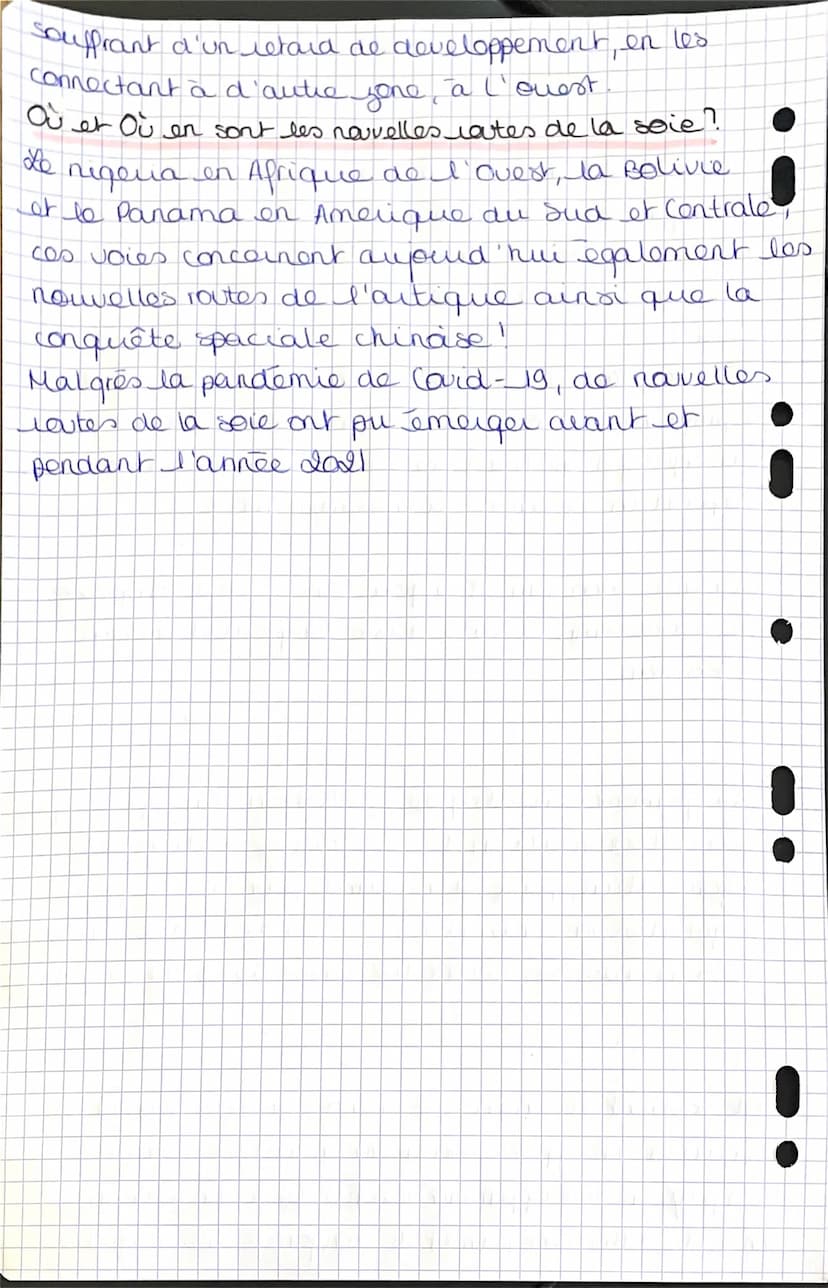 souffrant d'un retard de developpement, en les
connectant à d'autre zone, à l'ouest.
Où et Où en sont les nouvelles routes de la soie ?
Le nigeria en Afrique de l'Ouest, la Bolivie
et le Panama en Amerique du Sud et Centrale,
ces voies concernent aujourd'hui également les
nouvelles routes de l'artique ainsi que la
conquête spaciale chinoise !
Malgrés la pandémie de Covid-19, de nouvelles
routes de la soie ont pu émerger avant et
pendant l'année 2021